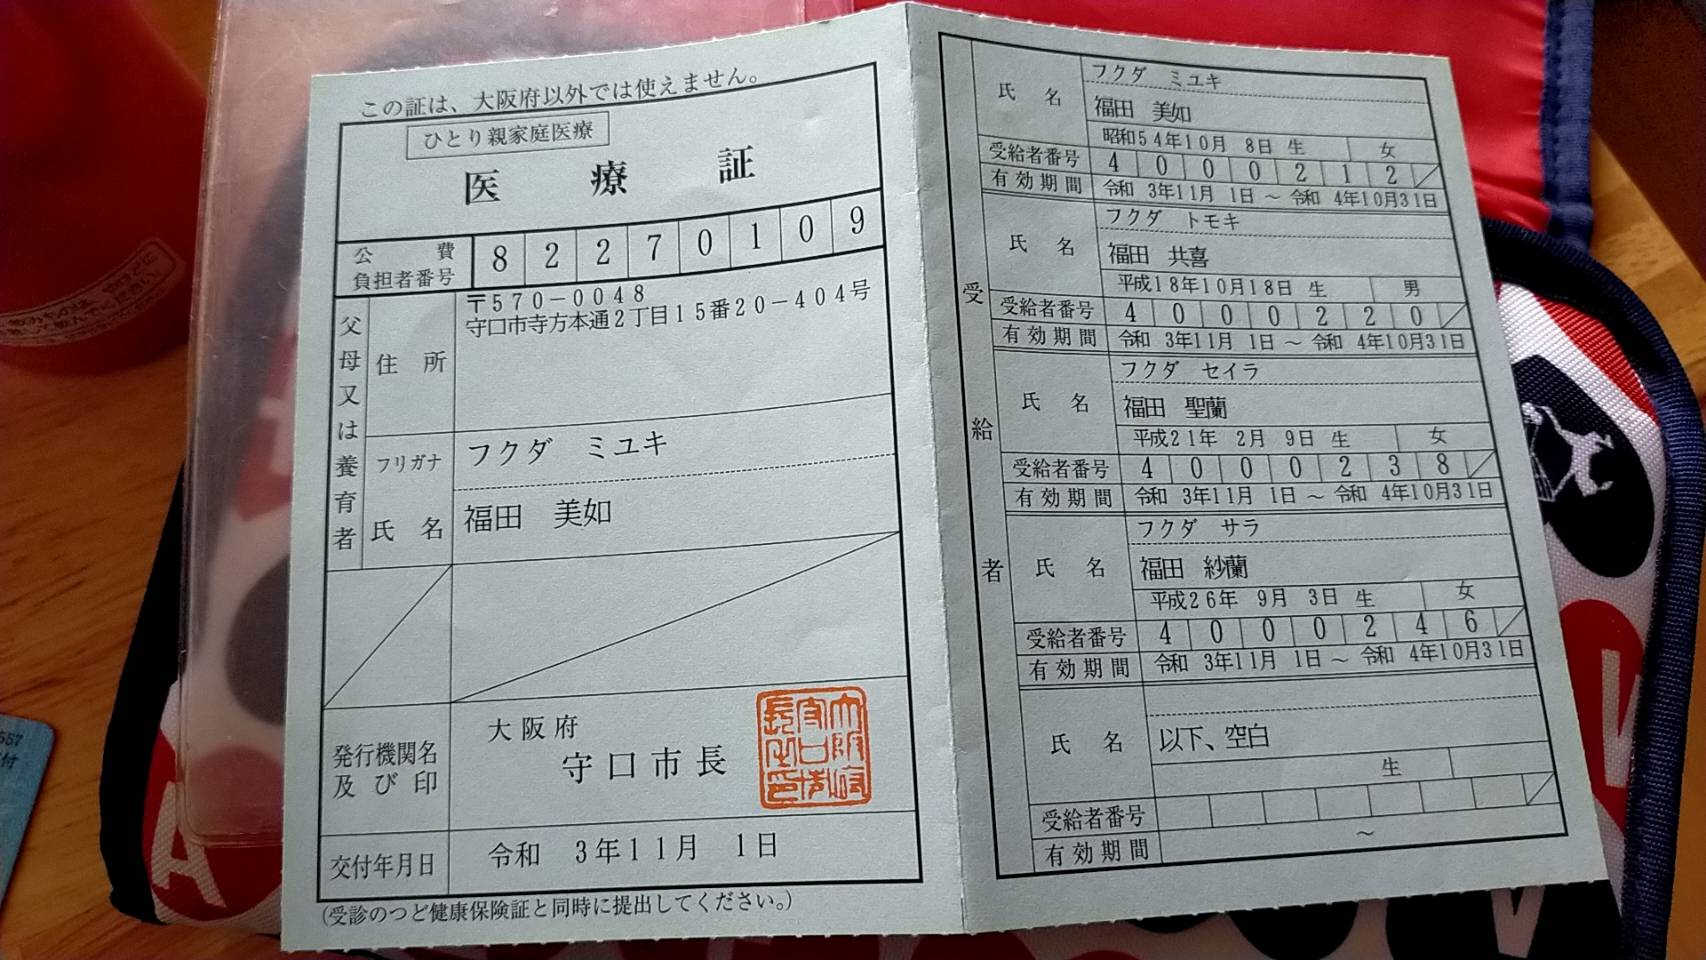 この証は、大阪府以外では使えません。
ひとり親家庭医療
医療証
公費負担者番号 82270109
父母又は養育者
住所
〒570-0048
守口市寺方本通2丁目15番20-404号
フリガナ フクダ ミユキ
氏名 福田 美如
発行機関名及び印
大阪府
守口市長
交付年月日 令和 3年11月 1日
(受診のつど健康保険証と同時に提出してください。)
受給者
フクダ ミユキ
氏名 福田 美如
昭和54年10月 8日 生 女
受給者番号 4000212
有効期間 令和 3年11月 1日 ~ 令和 4年10月31日
フクダ トモキ
氏名 福田 共喜
平成18年10月18日 生 男
受給者番号 4000220
有効期間 令和 3年11月 1日 ~ 令和 4年10月31日
フクダ セイラ
氏名 福田 聖蘭
平成21年 2月 9日 生 女
受給者番号 4000238
有効期間 令和 3年11月 1日 ~ 令和 4年10月31日
フクダ サラ
氏名 福田 紗蘭
平成26年 9月 3日 生 女
受給者番号 4000246
有効期間 令和 3年11月 1日 ~ 令和 4年10月31日
氏名 以下、空白
生
受給者番号
有効期間 ~
557
付